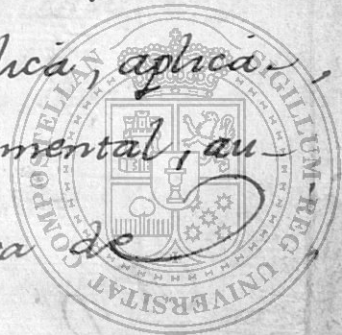 lica, aplica-,
mental, au-
ca de
SIGILLUM REG UNIVERSITAT COMPOTELLAN